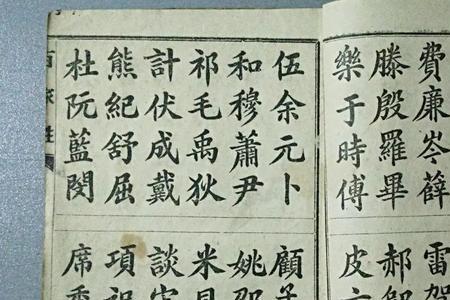 費廉岑薛 雷賀
滕殷羅畢 郝鄔
樂于時傅 皮
伍余元卜 顧
和穆蕭尹 姚邵
祁毛禹狄 米貝
計伏成戴 談
熊紀舒屈 項祝
杜阮藍閔 席季
百家姓